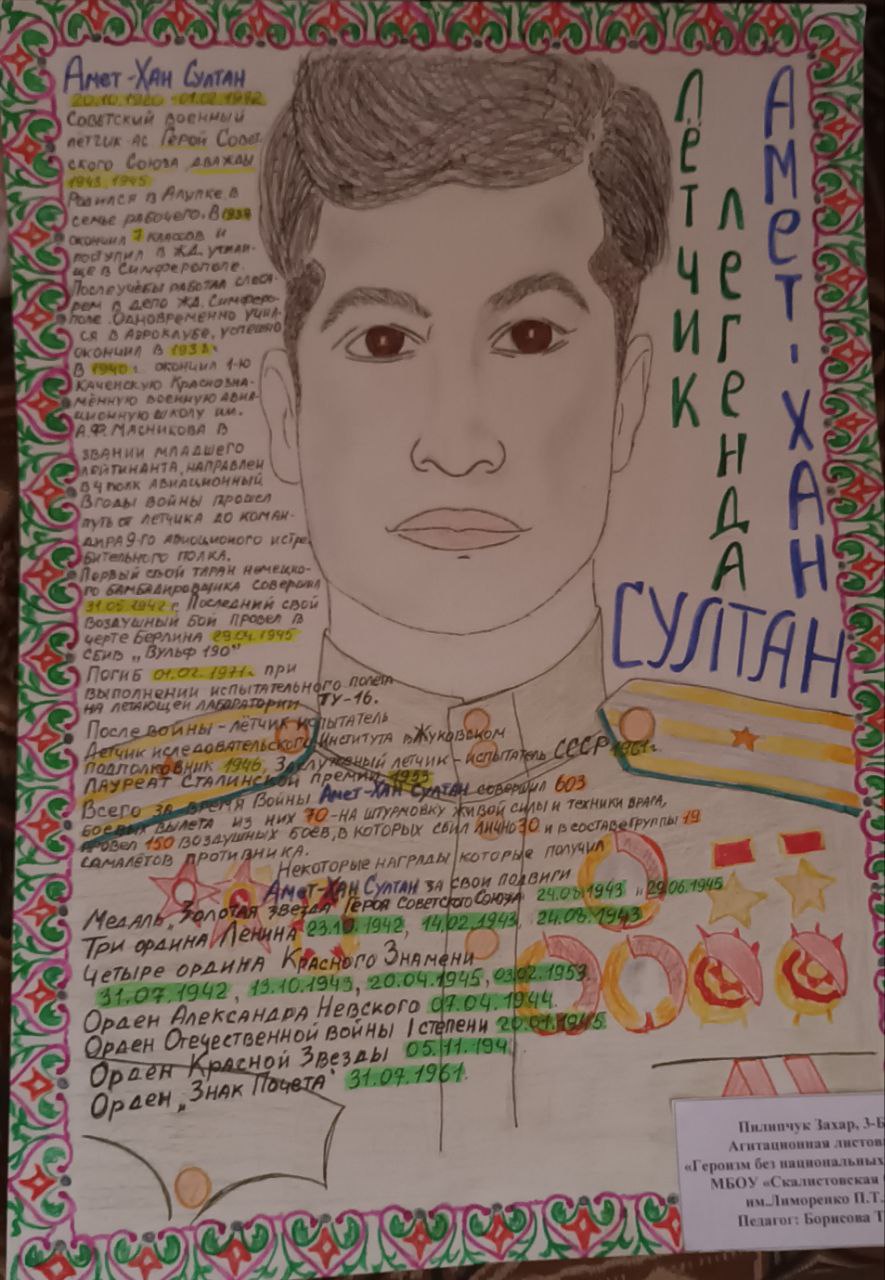 Амет-Хан Султан
20.10.1920 - 01.02.1972
Советский военный
лётчик-ас Герой Совет
ского Союза дважды
1943, 1945
Родился в Алупке в
семье рабочего. В
окончил 7 классов и
поступил в ж.д. учили-
ще в Симферополе.
После учёбы работал слеса-
рем в депо жд. Симферо-
поле. Одновременно учил-
ся в Аэроклубе, успешно
окончил в 1938г
В 1940 г. окончил 1-ю
Качинскую Краснозна-
мённую военную авиа-
ционную школу им.
А.Ф. Масникова в
звании младшего
лейтинанта, направлен
в 4 полк авиационный
В годы войны прошел
путь от летчика до коман-
дира 9-го авиоционого истре
бительного полка.
Первый свой таран немецко-
го бамбадировщика совершил
31.05.1942 г. Последний свой
воздушный бой провел в
черте Берлина 29.04.1945
сбив „Вульф 190"
Погиб 01.02.1971г при
выполнении испытательного полета
на летающей лаборатории ТУ-16.
После войны - лётчик испытатель
Летчик иследовательского Института в Жуковском
подполковник 1946, Заслуженный летчик-испытатель СССР 1961г.
Лауреат Сталинской премии 1953
Всего за время Войны Амет-Хан Султан совершил 603
боевых вылета из них 70-на штурмовку живой силы и техники врага,
провел 150 воздушных боев, в которых сбил лично 30 и в составе группы 19
самалётов противника.
Некоторые награды которые получил
Амет-Хан Султан за свои подвиги
Медаль „Золотая звезда" Героя Советского Союза 24.08.1943 и 29.06.1945
Три ордина Ленина 23.10.1942, 14.02.1943, 24.08.1943
Четыре ордина Красного Знамени
31.07.1942, 13.10.1943, 20.04.1945, 03.02.1953
Орден Александра Невского 07.04.1944.
Орден Отечественной войны I степени 20.01.1945
Орден Красной Звезды 05.11.194
Орден „Знак Почета" 31.07.1961.
Лётчик
легенда
Амет-Хан
Султан
Пилипчук Захар, 3-Б
Агитационная листов
«Героизм без национальных
МБОУ «Скалистовская
им.Лиморенко П.Т.
Педагог: Борисова Т